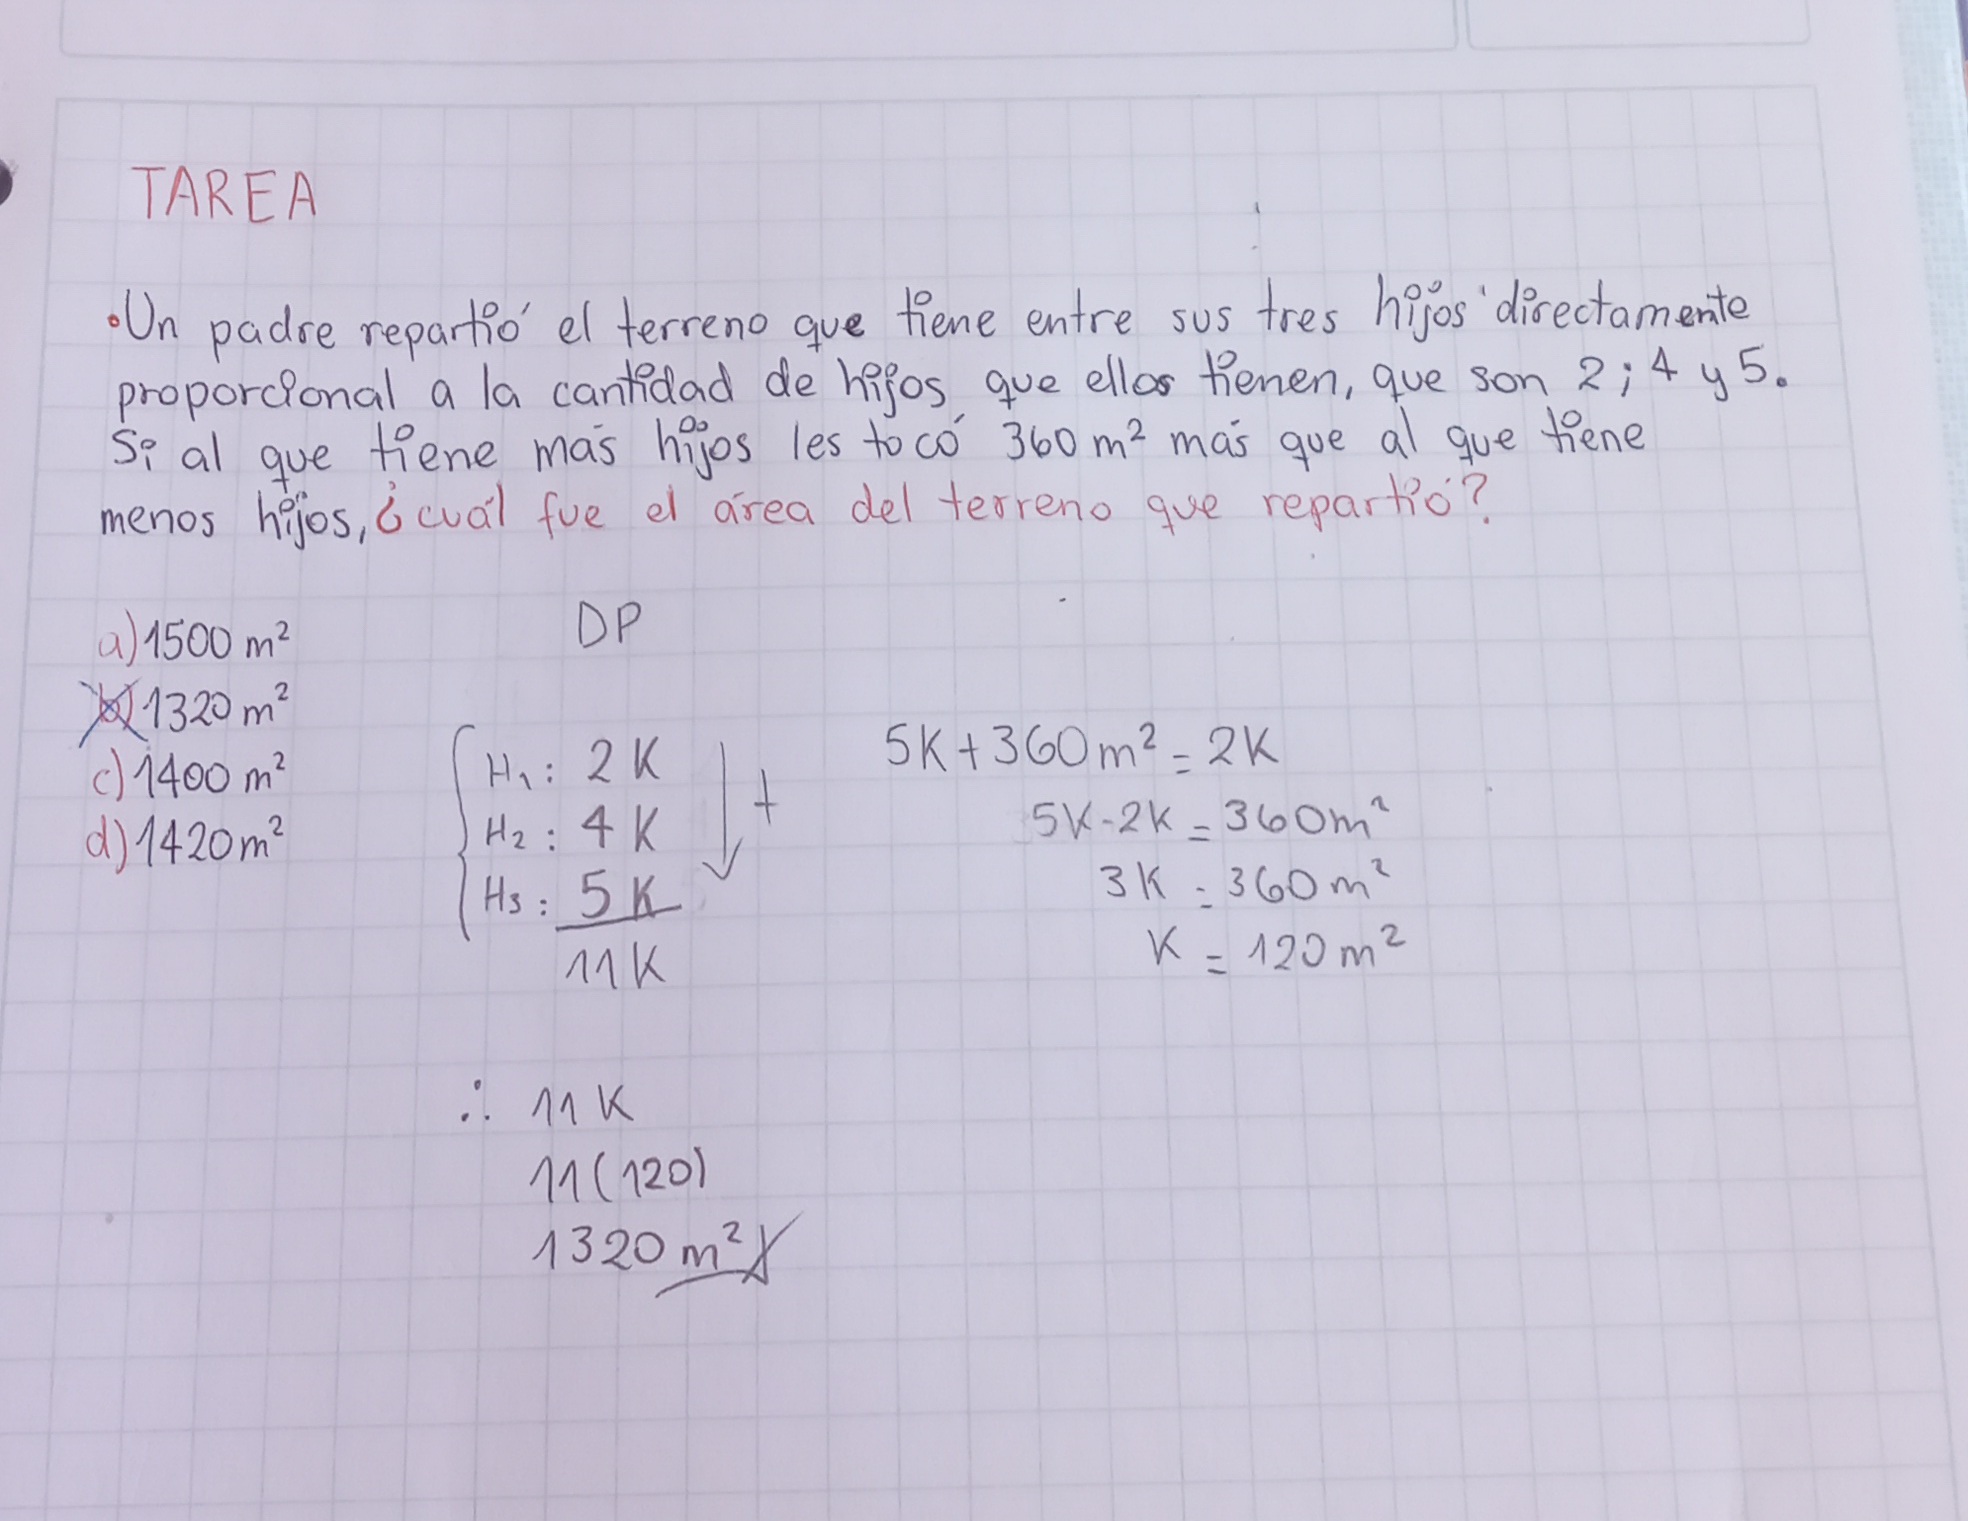 TAREA
•Un padre repartió el terreno que tiene entre sus tres hijos directamente
proporcional a la cantidad de hijos que ellos tienen, que son 2; 4 y 5.
Si al que tiene más hijos les tocó 360 m² más que al que tiene
menos hijos, ¿cuál fue el área del terreno que repartió?
a) 1500 m²
b) 1320 m²
c) 1400 m²
d) 1420 m²
DP
H₁: 2K
H₂: 4K
H₃: 5K
11K
+
5K + 360m² = 2K
5K - 2K = 360m²
3K = 360m²
K = 120m²
∴ 11K
11(120)
1320 m²